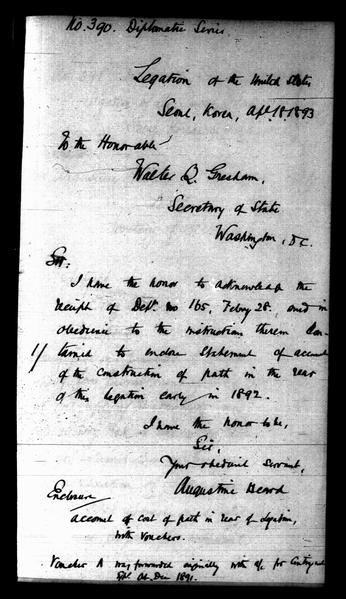 No. 390. Diplomatic Series.
Legation of the United States
Seoul, Korea, Apl. 18, 1893
To the Honorable
Walter Q. Gresham,
Secretary of State
Washington, D.C.
Sir:
I have the honor to acknowledge the
receipt of Dept. no 165, Febry 28. and in
obedience to the instructions therein con-
1/ tained to enclose statement of account
of the construction of path in the rear
of this Legation early in 1892.
I have the honor to be,
Sir,
Your obedient Servant,
Augustine Heard
Enclosure
account of cost of path in rear of Legation,
with vouchers.
Voucher A was forwarded originally with a/c for
Dec 1891.